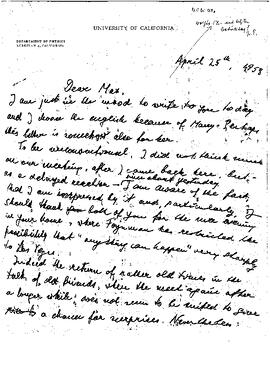 UNIVERSITY OF CALIFORNIA
DEPARTMENT OF PHYSICS
BERKELEY 4, CALIFORNIA
April 25th, 1958
Dear Max,
I am just in the mood to write to you to day
and I choose the english because of Mary. Perhaps
this letter is somewhat also for her.
To be unconventional, I did not think much
on our meeting, after I came back here, but,
since about yesterday,
as a delayed reaction – I am aware of the fact,
that I am impressed by it and, particularly, I
should thank both of you for the nice evening
in your house, where Feynman has restricted the
possibility that "anything can happen" very sharply
to Las Vegas.
Indeed the return of rather old times in the
talk of old friends, where the meet again after
a longer while, does not seem to be suited to give
a chance for surprises. Nevertheless: